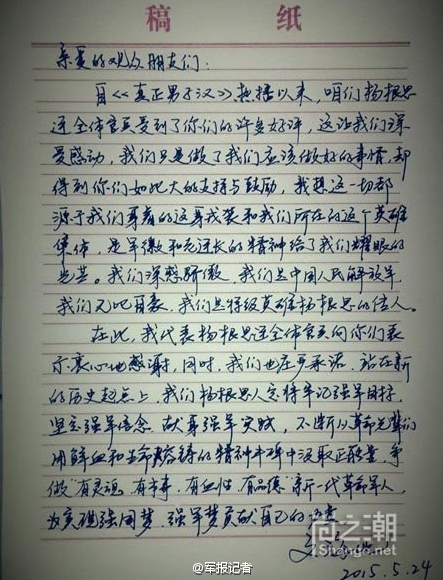 稿 纸
亲爱的观众朋友们：
自《真正男子汉》热播以来，咱们杨根思
连全体官兵受到了你们的许多好评，这让我们深
受感动，我们只是做了我们应该做好的事情，却
得到你们如此大的支持与鼓励，我想这一切都
源于我们穿着的这身戎装和我们所在的这个英雄
集体，是军徽和老连长的精神给了我们耀眼的
光芒。我们深感骄傲，我们是中国人民解放军，
我们无比自豪，我们是特级英雄杨根思的传人。
在此，我代表杨根思连全体官兵向你们表
示衷心地感谢，同时，我们也庄严承诺，站在新
的历史起点上，我们杨根思人定将牢记强军目标，
坚定强军信念，献身强军实践，不断从革命先辈们
用鲜血和生命熔铸的精神丰碑中汲取正能量，争
做"有灵魂、有本事、有血性、有品德"新一代革命军人，
为实现强国梦、强军梦贡献自己的
2015.5.24
尚之潮
Shange.net
@军报记者